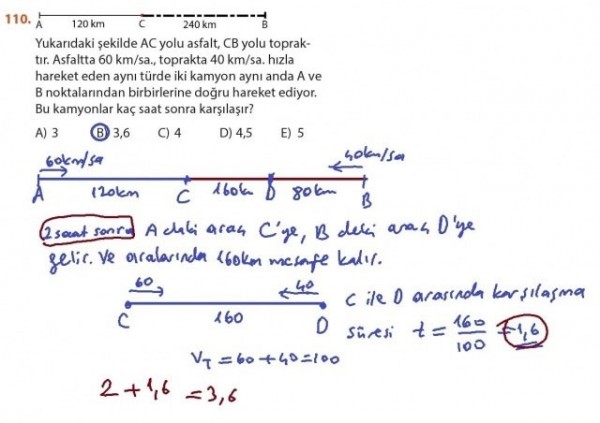 110.
A 120 km C 240 km B
Yukarıdaki şekilde AC yolu asfalt, CB yolu toprak-
tır. Asfaltta 60 km/sa., toprakta 40 km/sa. hızla
hareket eden aynı türde iki kamyon aynı anda A ve
B noktalarından birbirlerine doğru hareket ediyor.
Bu kamyonlar kaç saat sonra karşılaşır?
A) 3 B) 3,6 C) 4 D) 4,5 E) 5
60km/sa 40km/sa
A 120km C 160km D 80km B
2 saat sonra A daki araç C'ye, B deki araç D'ye
gelir. Ve aralarında 160km mesafe kalır.
60 40
C 160 D
C ile D arasında karşılaşma
süresi t = 160/100 = 1,6
VT = 60 + 40 = 100
2 + 1,6 = 3,6